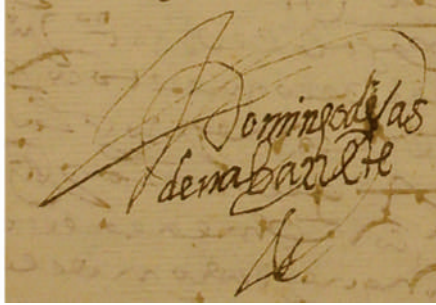 Domingo diyas
de nabarrete